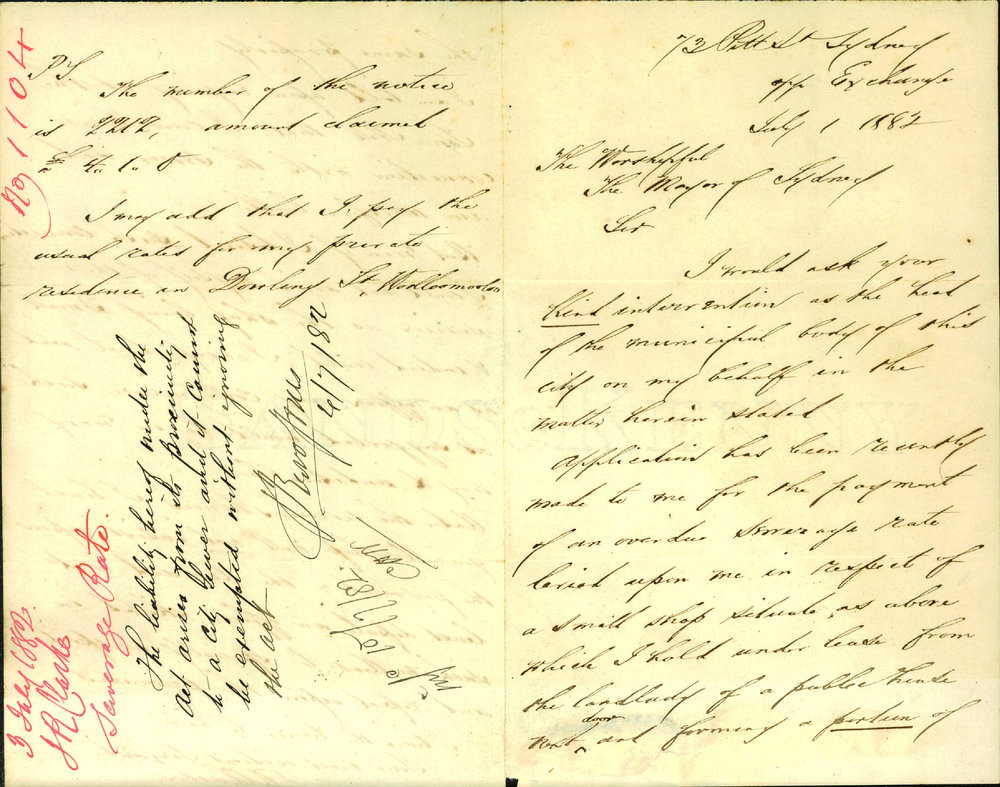 73 Pitt St Sydney
opp Exchange
July 1 1882
The Worshipful
The Mayor of Sydney
Sir
I would ask your
kind intervention as the head
of the municipal body of this
city on my behalf in the
matter herein stated
Application has been recently
made to me for the payment
of an overdue Sewerage rate
levied upon me in respect of
a small shop situate as above
which I hold under lease from
the landlady of a public house
next door and forming a portion of
P.S.
The number of the notice
is 2212, amount claimed
£ 4. 1. 8
I may add that I pay the
usual rates for my private
residence in Dowling St, Woolloomooloo
No 1104
3 July 1882.
J R Clarke
Sewerage Rate.
The liability hereof under the
Act arises from its proximity
to a city Sewer and it cannot
be exempted without ignoring
the act
4/7/82
12/7/82